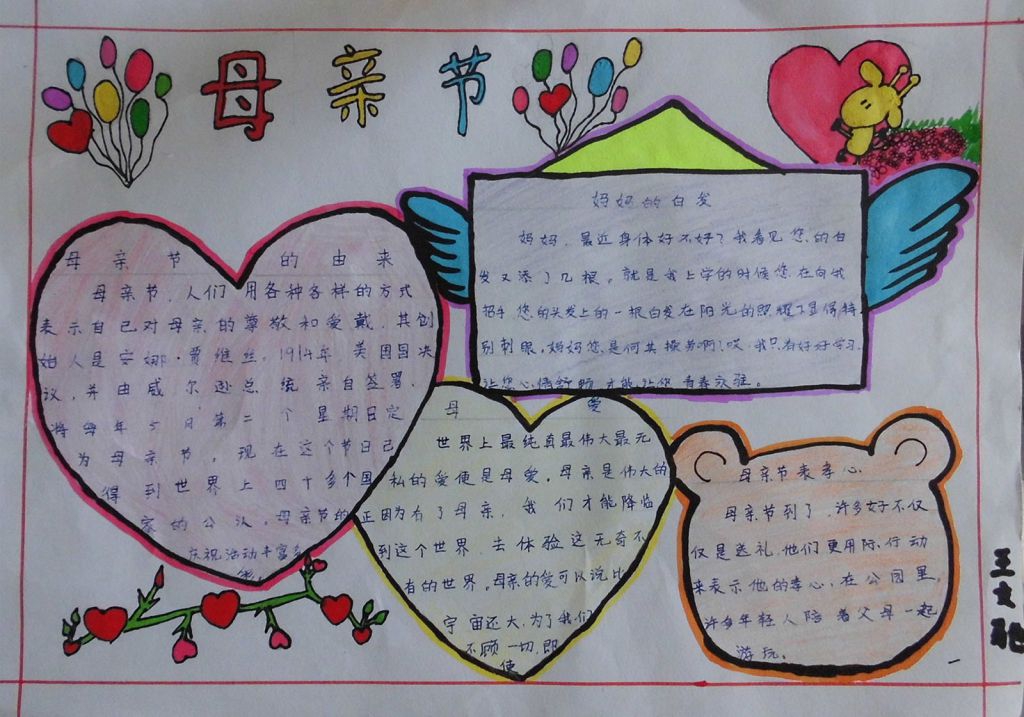 母亲节
母亲节的由来
母亲节,人们用各种各样的方式
表示自己对母亲的尊敬和爱戴,其创
始人是安娜·贾维丝,1914年,美国国决
议,并由威尔逊总统亲自签署,
将每年5月第二个星期日定
为母亲节,现在这个节日已
得到世界上四十多个国
家的公认,母亲节的
庆祝活动丰富多
妈妈的白发
妈妈,最近身体好不好?我看见您的白
发又添了几根。就是我上学的时候您在向我
招手您的头发上的一根白发在阳光的照耀下显得特
别刺眼,妈妈您是何其操劳啊!哎,我只有好好学习,
让您心情舒畅,才能让您青春永驻。
母爱
世界上最纯真最伟大最无
私的爱便是母爱。母亲是伟大的
正因为有了母亲,我们才能降临
到这个世界,去体验这无奇不
有的世界。母亲的爱可以说比
宇宙还大,为了我们
不顾一切,即
使
母亲节表孝心
母亲节到了,许多好不仅
仅是送礼,他们更用际行动
来表示他的孝心,在公园里,
许多年轻人陪着父母一起
游玩。
王文